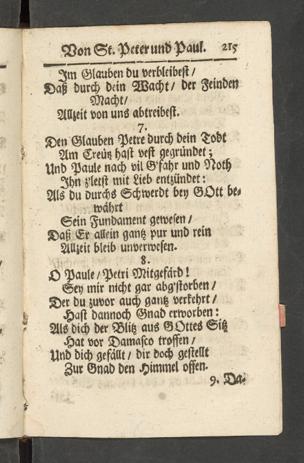 Von St. Peter und Paul. 215
Im Glauben du verbleibest /
Daß durch dein Wacht / der Feinden
Macht /
Allzeit von uns abtreibest.
7.
Den Glauben Petre durch dein Todt
Am Creütz hast vest gegründet;
Und Paule nach vil G'fahr und Noth
Ihn zletst mit Lieb entzündet:
Als du durchs Schwerdt bey GOtt be-
währt
Sein Fundament gewesen /
Daß Er allein gantz pur und rein
Allzeit bleib unverwesen.
8.
O Paule / Petri Mitgefärd!
Sey mir nicht gar abg'storben /
Der du zuvor auch gantz verkehrt /
Hast dannoch Gnad erworben:
Als dich der Blitz aus GOttes Sitz
Hat vor Damasco troffen /
Und dich gefällt / dir doch gestellt
Zur Gnad den Himmel offen.
9. Da-